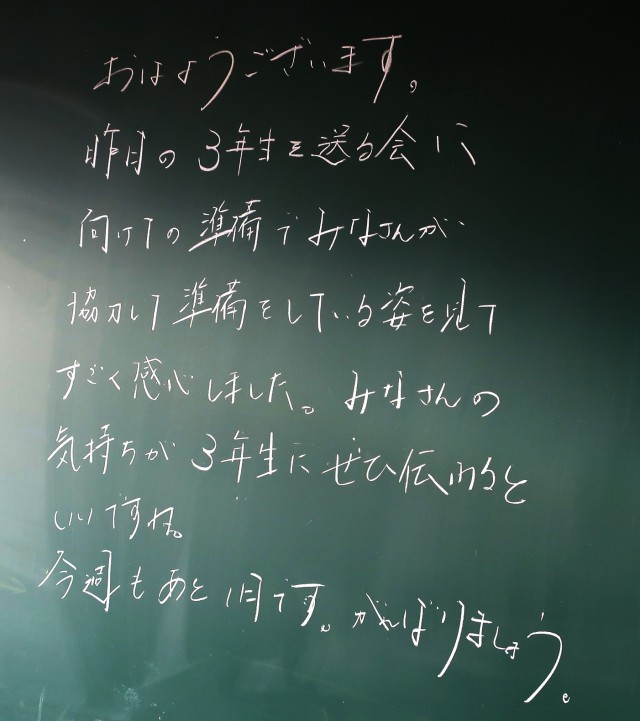 おはようございます。
昨日の3年生を送る会に
向けての準備でみなさんが
協力して準備をしている姿を見て
すごく感心しました。みなさんの
気持ちが3年生にぜひ伝わると
いいですね。
今週もあと1日です。がんばりましょう。